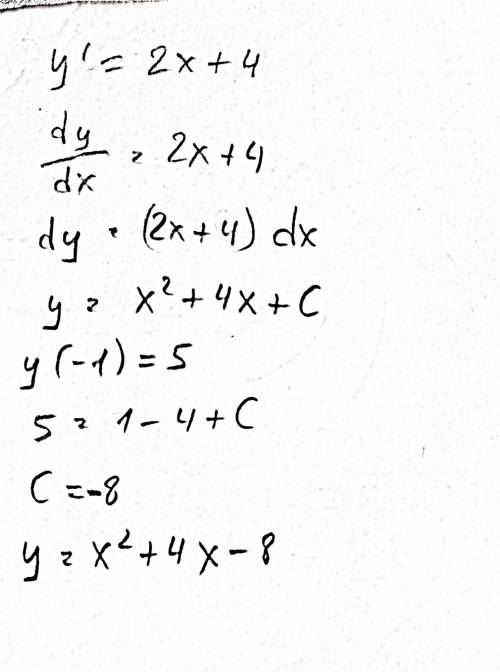 y' = 2x + 4
dy/dx = 2x + 4
dy = (2x + 4) dx
y = x² + 4x + C
y(-1) = 5
5 = 1 - 4 + C
C = -8
y = x² + 4x - 8